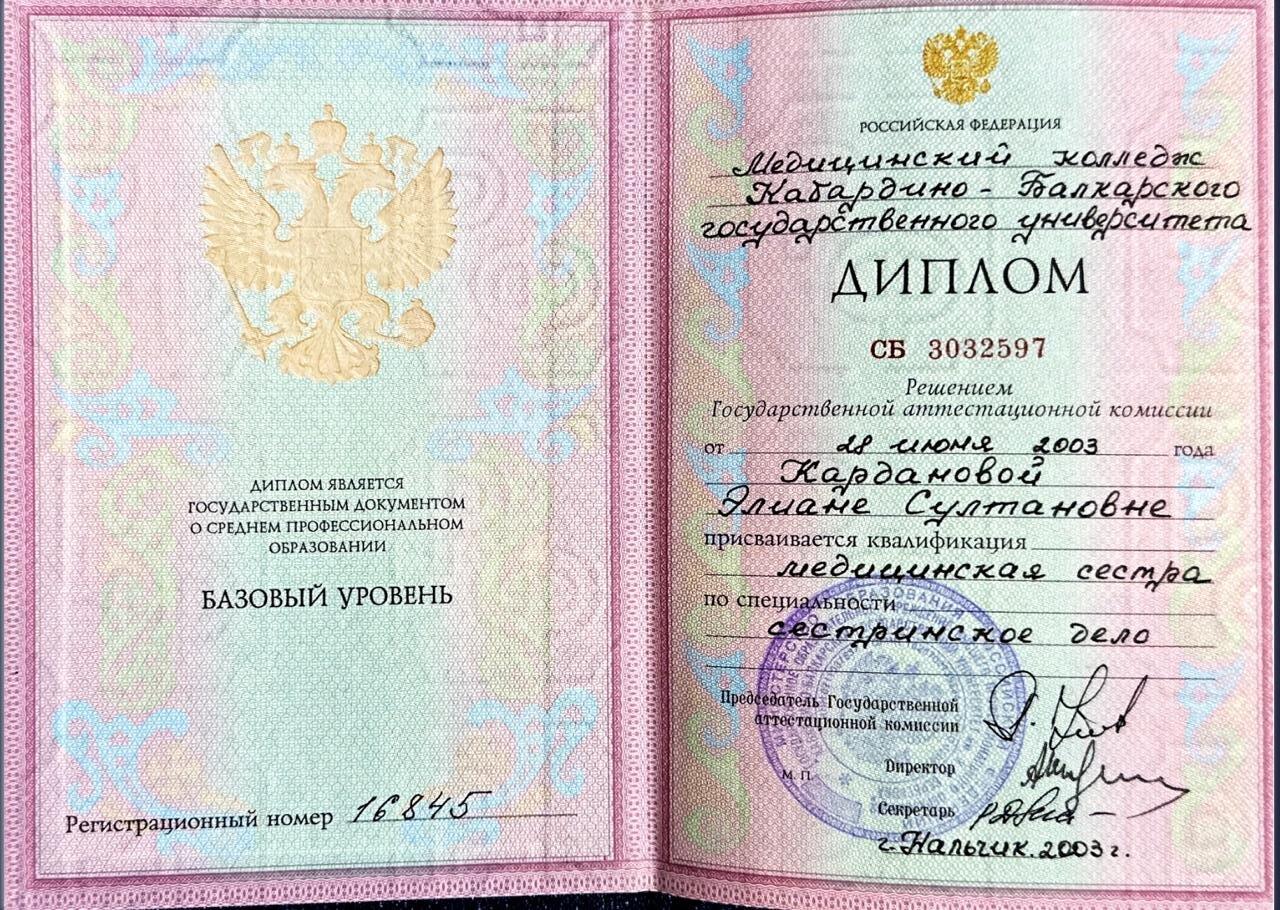 ДИПЛОМ ЯВЛЯЕТСЯ
ГОСУДАРСТВЕННЫМ ДОКУМЕНТОМ
О СРЕДНЕМ ПРОФЕССИОНАЛЬНОМ
ОБРАЗОВАНИИ
БАЗОВЫЙ УРОВЕНЬ
Регистрационный номер 16845
РОССИЙСКАЯ ФЕДЕРАЦИЯ
Медицинский колледж
Кабардино - Балкарского
государственного университета
ДИПЛОМ
СБ 3032597
Решением
Государственной аттестационной комиссии
от 28 июня 2003 года
Кардановой
Элиане Султановне
присваивается квалификация
медицинская сестра
по специальности
сестринское дело
Председатель Государственной
аттестационной комиссии
Директор
М. П.
Секретарь
г. Нальчик. 2003 г.